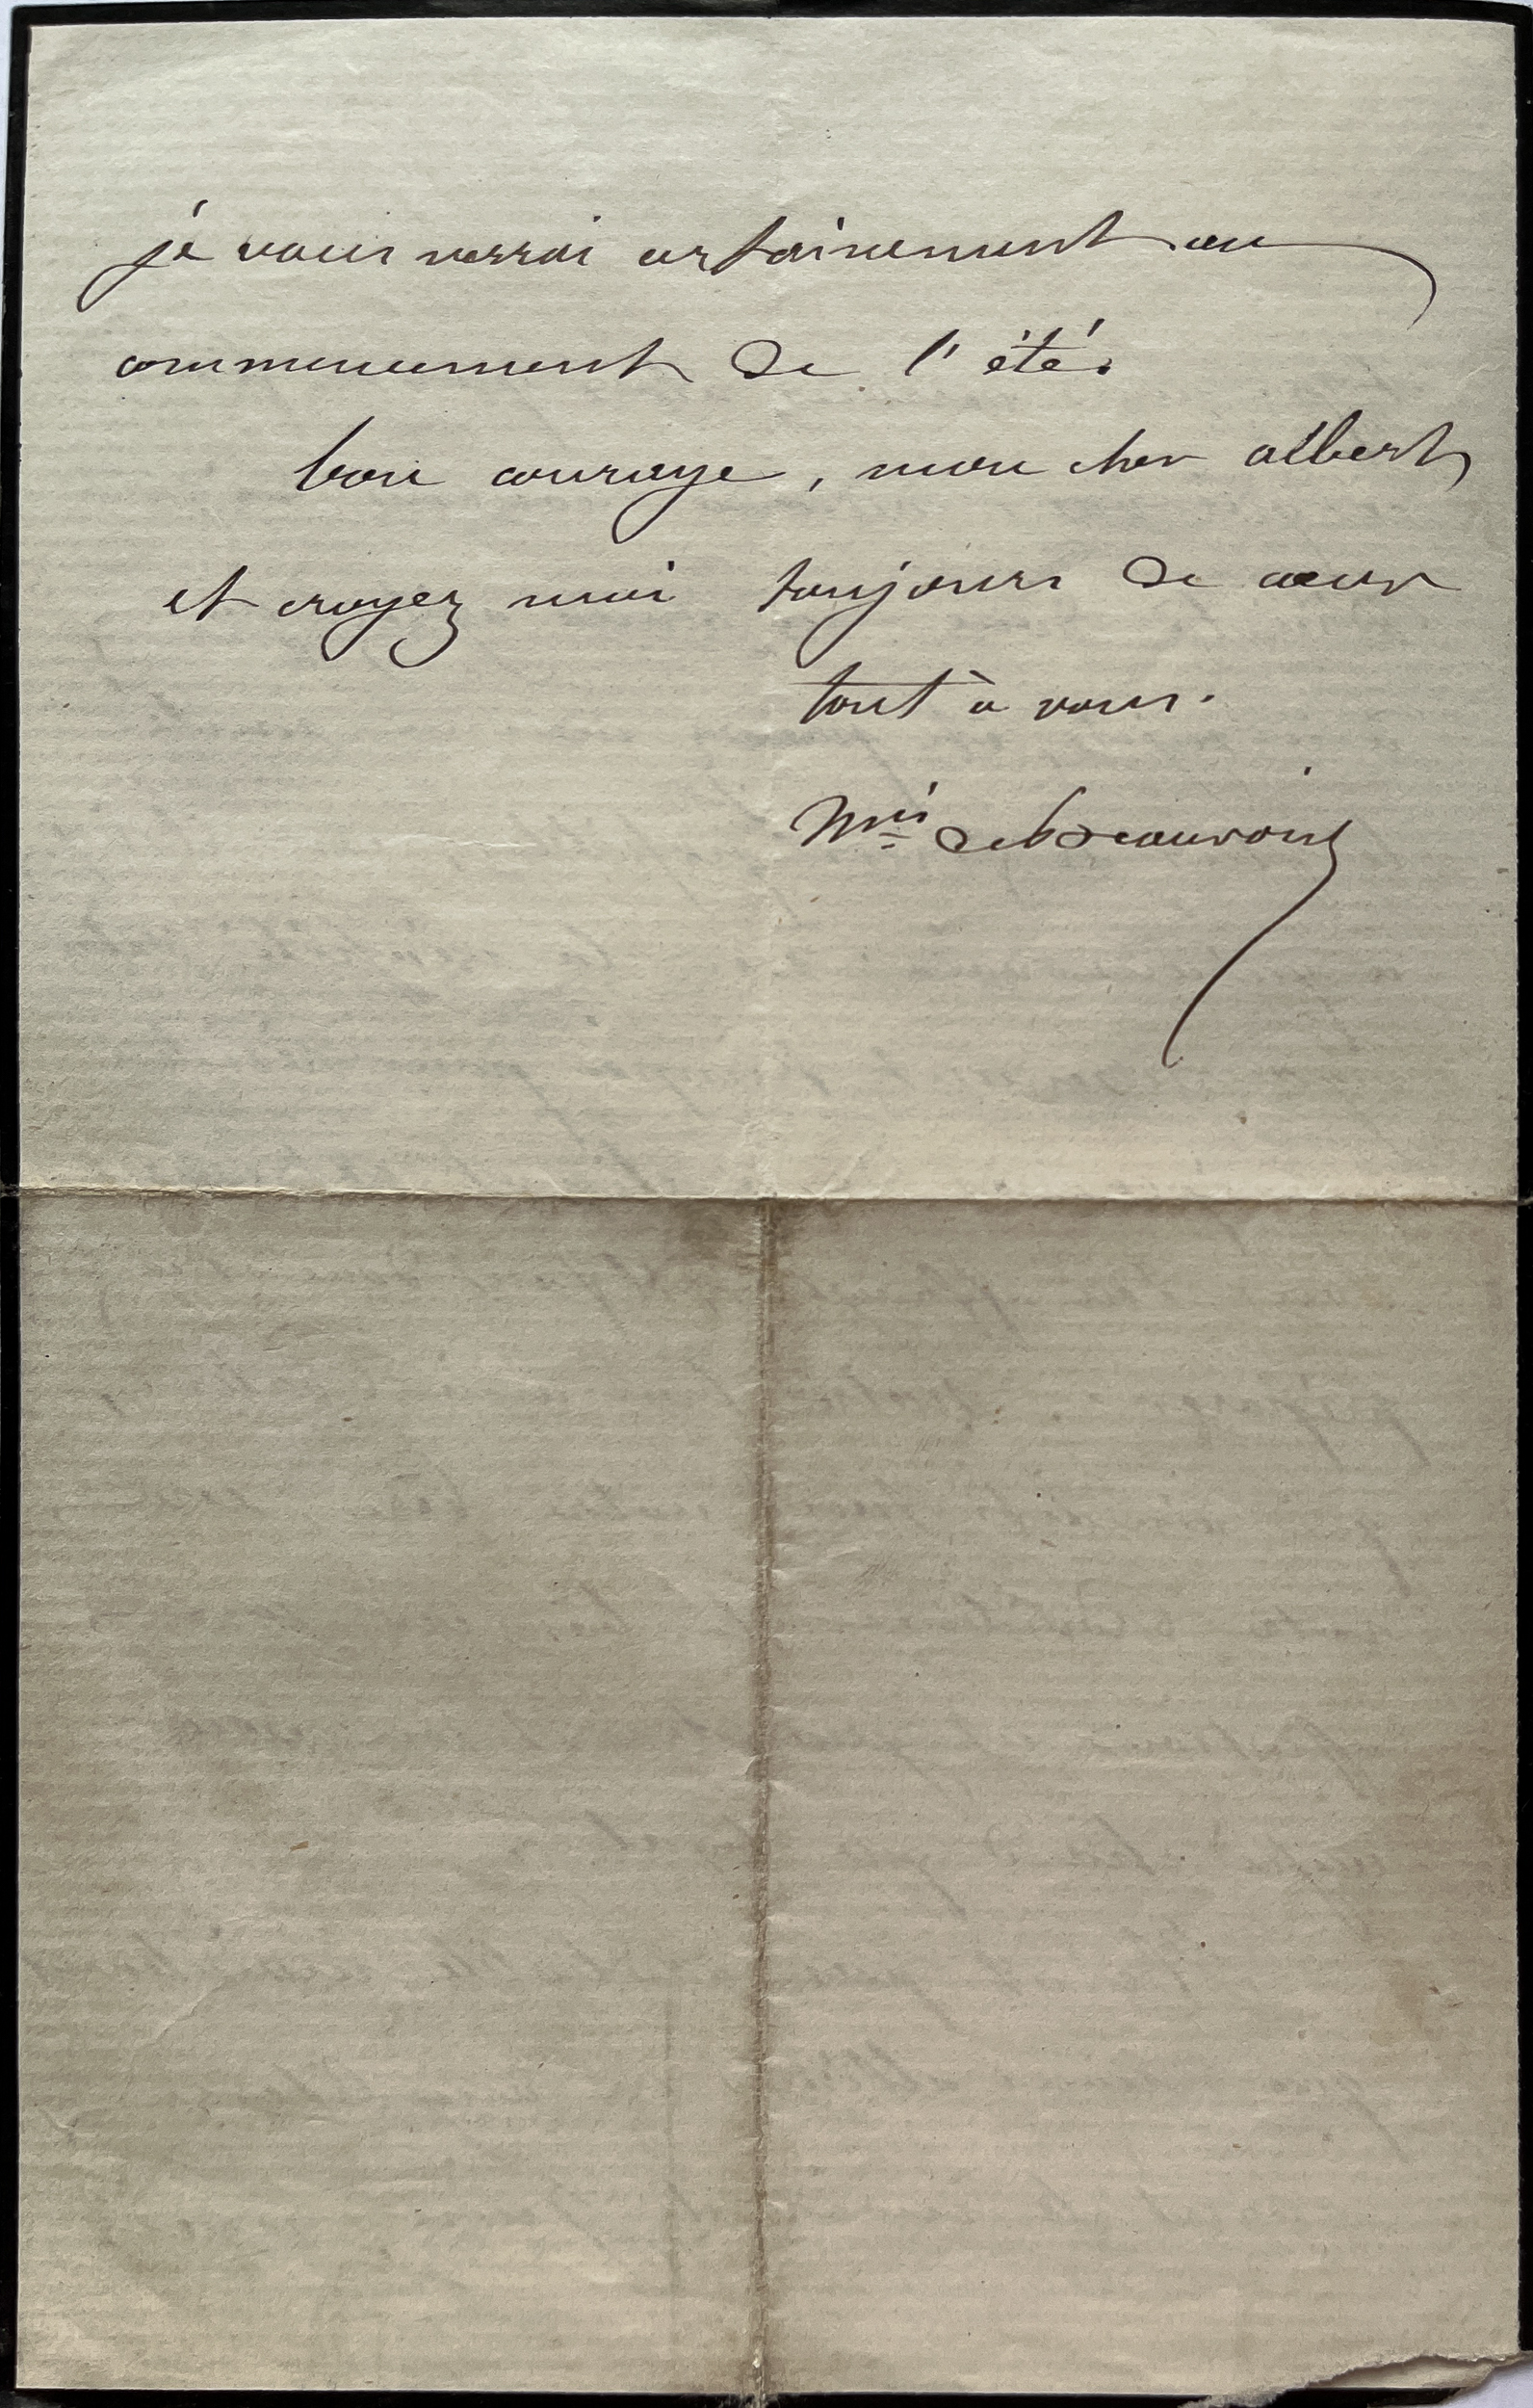 je vous verrai certainement au
commencement de l'été.
bon courage, mon cher albert,
et croyez moi toujours de cœur
tout à vous.
Mis de Beauvoir